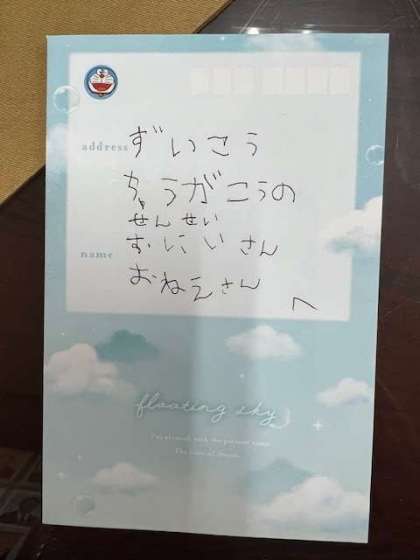 address
ずいこう
ちゅうがこうの
せんせい
name
おにいさん
おねえさん
へ
floating sky